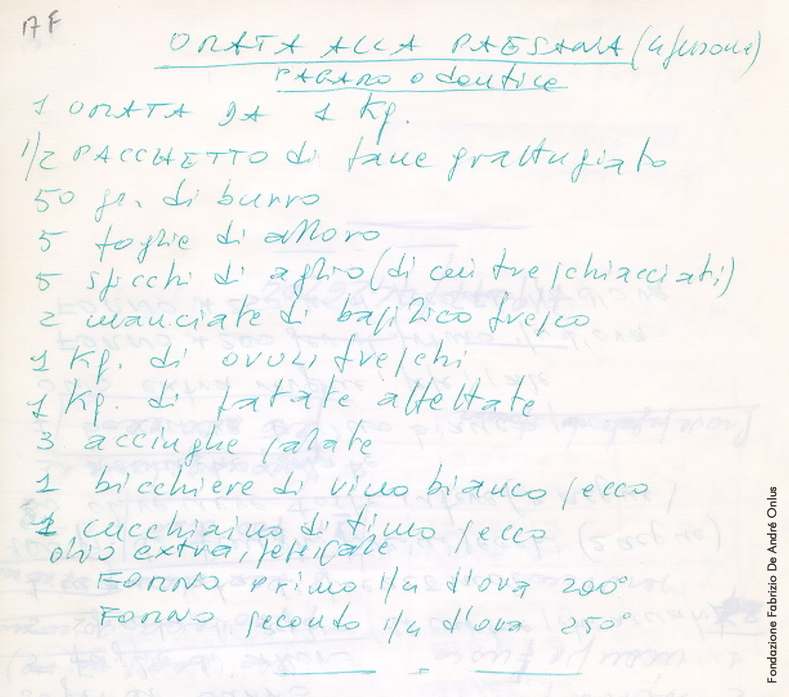 AF
ORATA ALLA PAESANA (4 persone)
PAGARO o dentice
1 ORATA DA 1 Kg.
1/2 PACCHETTO di pane grattugiato
50 gr. di burro
5 foglie di alloro
5 spicchi di aglio (di cui tre schiacciati)
2 manciate di basilico fresco
1 Kg. di ovuli freschi
1 Kg. di patate affettate
3 acciughe salate
1 bicchiere di vino bianco secco
1 cucchiaino di timo secco
olio extra, sale, pepe
FORNO primo 1/4 d'ora 200°
FORNO secondo 1/4 d'ora 250°
Fondazione Fabrizio De André Onlus